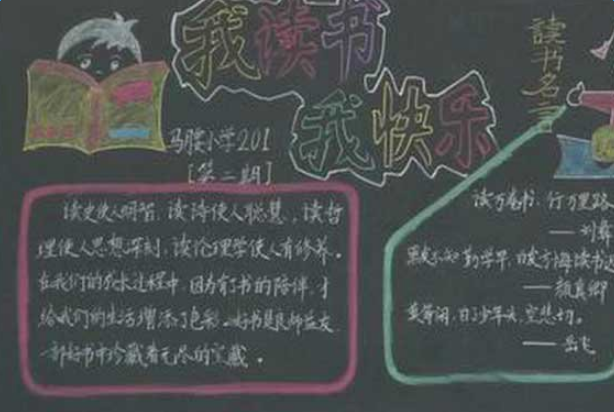 我读书
我快乐
读书名言
马腰小学201
[第二期]
读史使人明智，读诗使人聪慧，读哲
理使人思想深刻，读伦理学使人有修养。
在我们的成长过程中，因为有了书的陪伴，才
给我们的生活增添了色彩。好书是良师益友
一部好书中珍藏着无尽的宝藏。
读万卷书，行万里路
——刘彝
黑发不知勤学早，白发方悔读书迟
——颜真卿
莫等闲，白了少年头，空悲切。
——岳飞